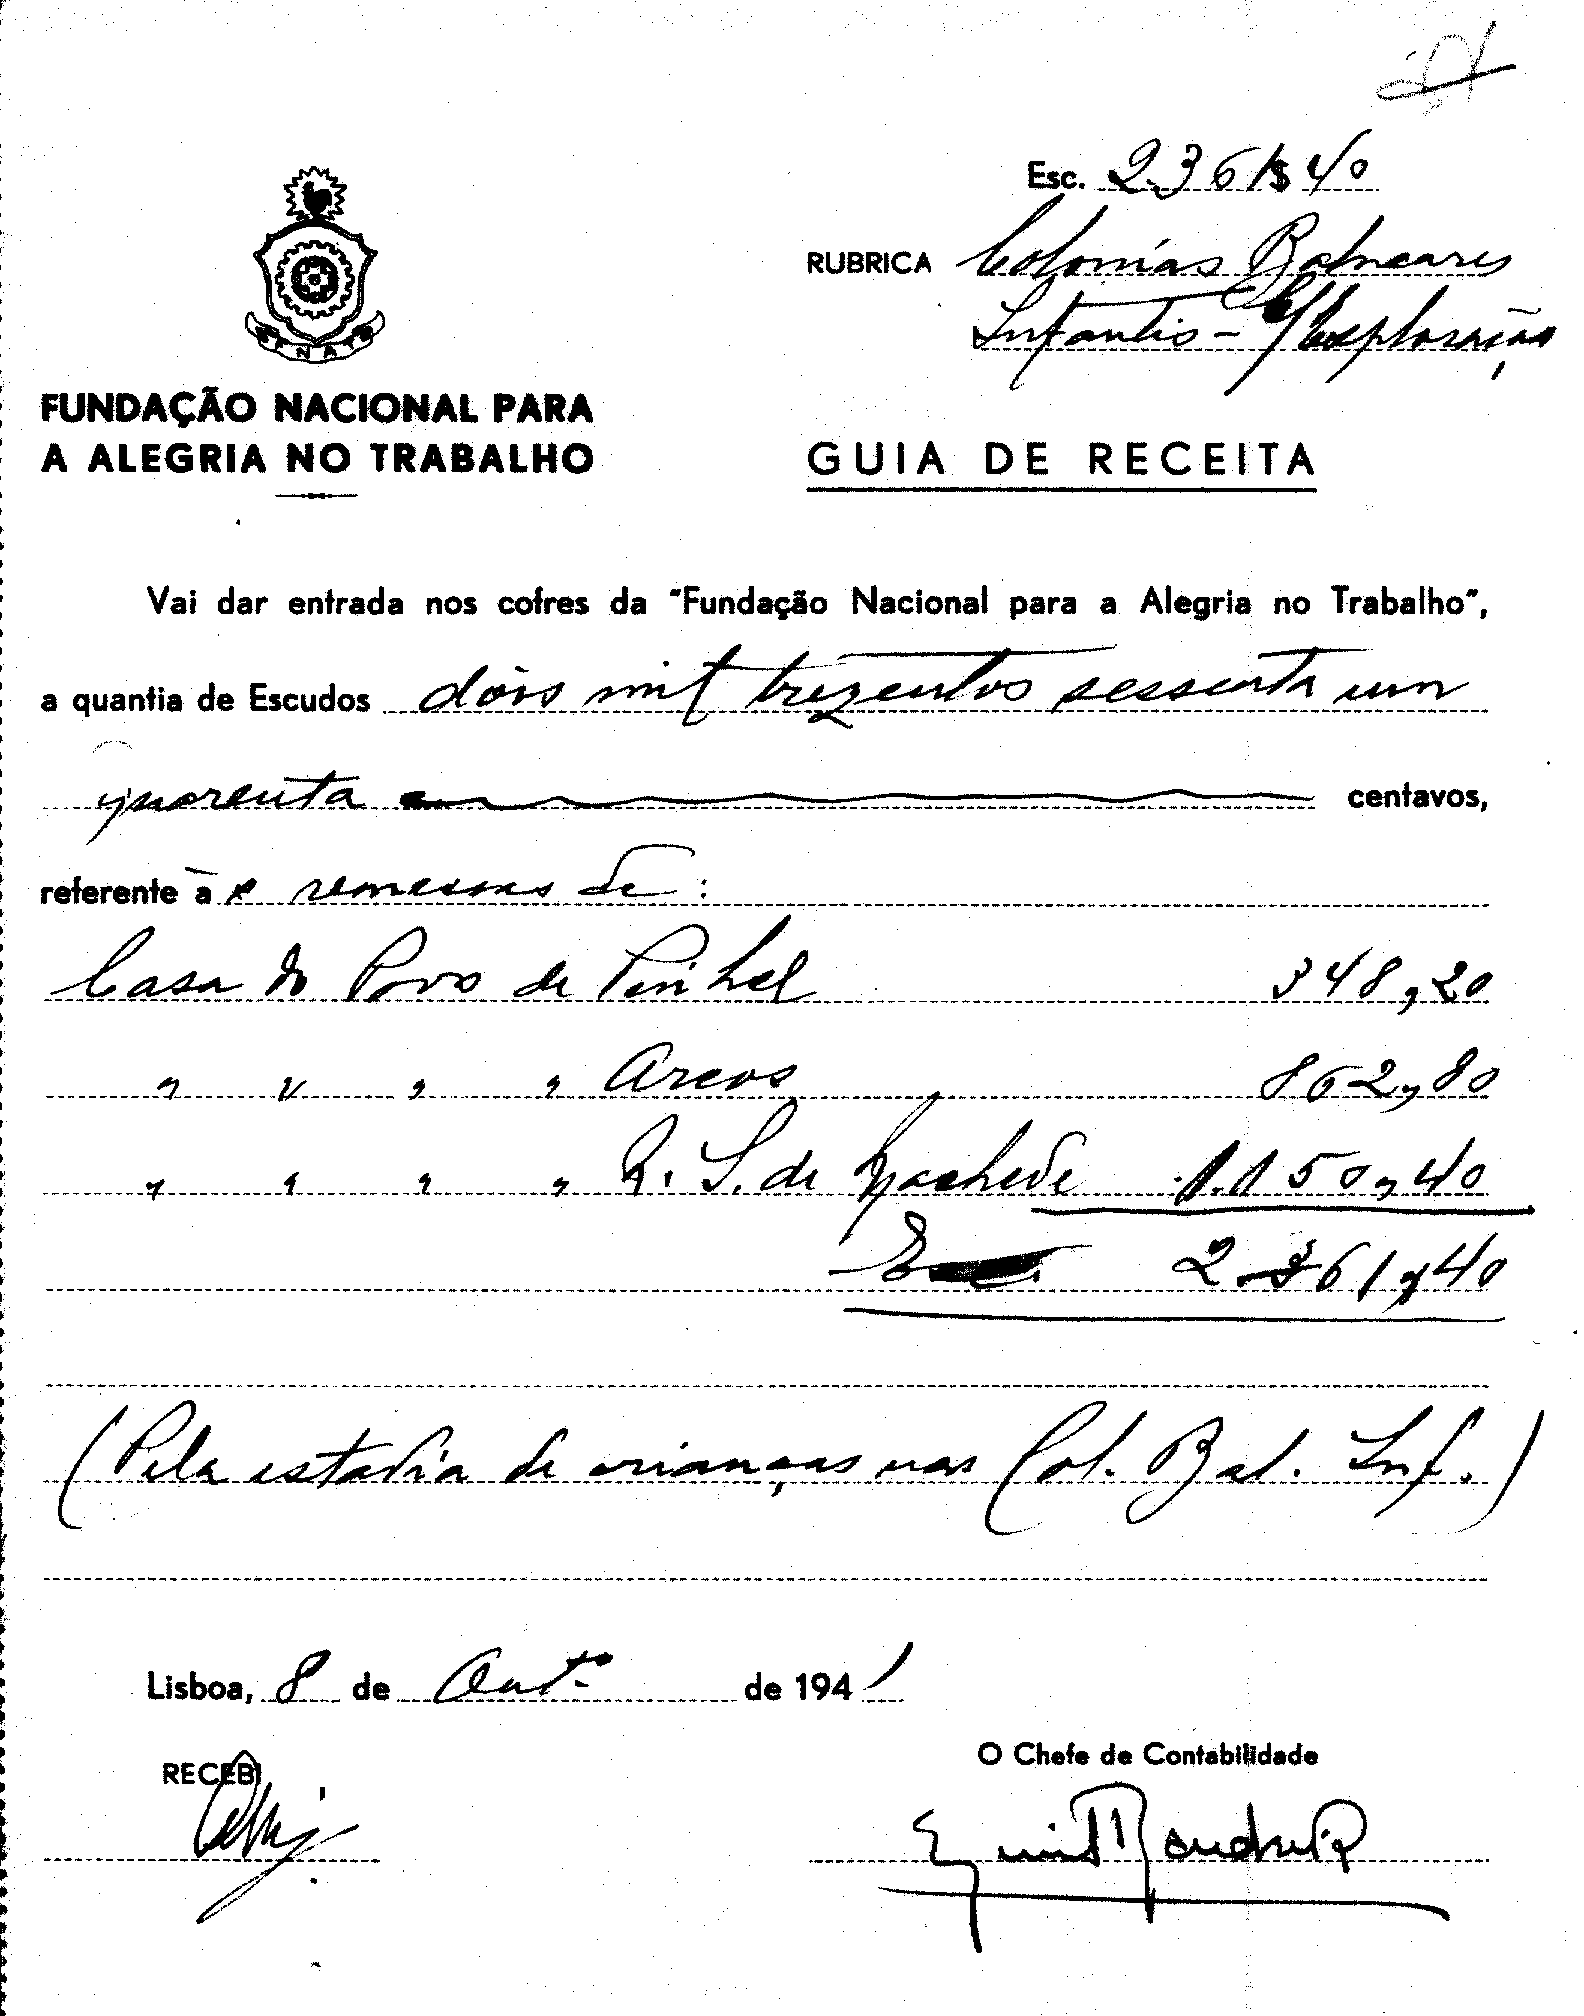 Esc. 2.361$40
RUBRICA Colonias Balneares
Infantis - c/ Exploração
FUNDAÇÃO NACIONAL PARA
A ALEGRIA NO TRABALHO
GUIA DE RECEITA
Vai dar entrada nos cofres da "Fundação Nacional para a Alegria no Trabalho",
a quantia de Escudos dois mil trezentos sessenta um
quarenta centavos,
referente às remessas de:
Casa do Povo de Pinhel 348,20
" " " " Arcos 862,80
" " " " R. S. de Machede 1.150,40
2.361,40
(Pela estadia de crianças nas Col. Bal. Inf.)
Lisboa, 8 de Outº de 1941
RECEBI
O Chefe de Contabilidade